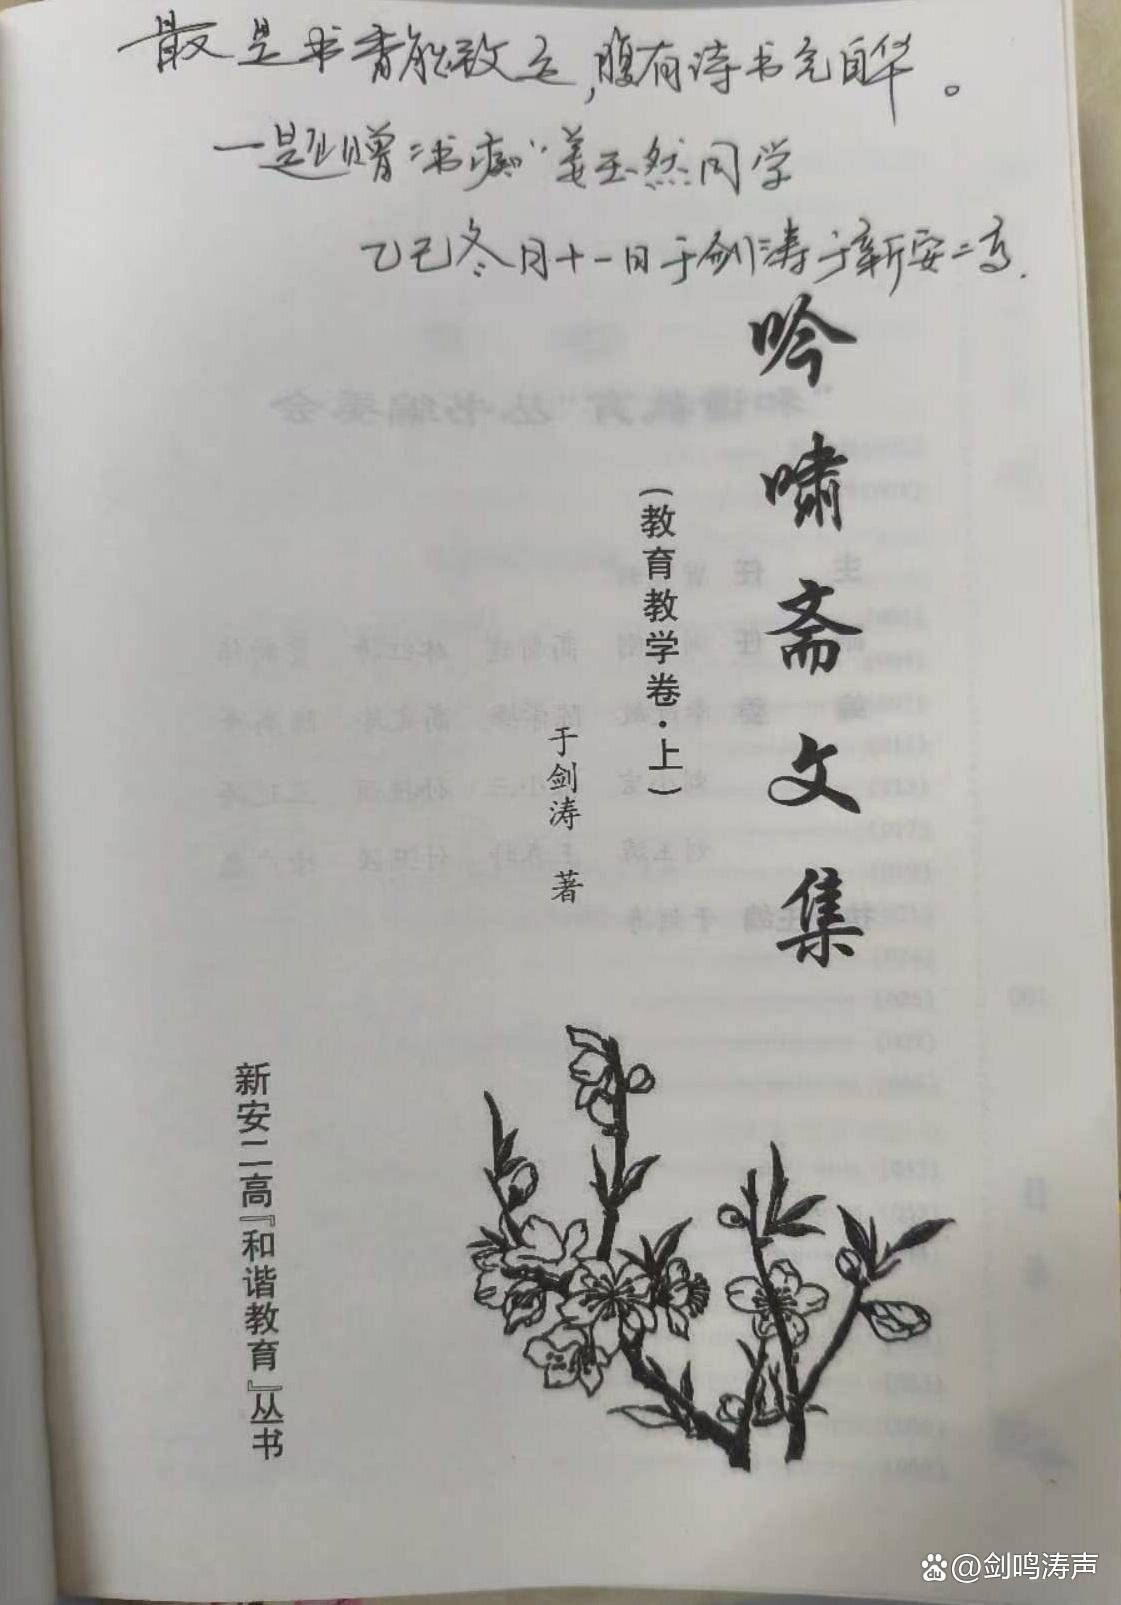 最是书香能致远，腹有诗书气自华。
一题赠“书痴”姜玉然同学
乙巳冬月十一日于剑涛于新安二高.
吟啸斋文集
（教育教学卷·上）
于剑涛 著
新安二高『和谐教育』丛书
@剑鸣涛声